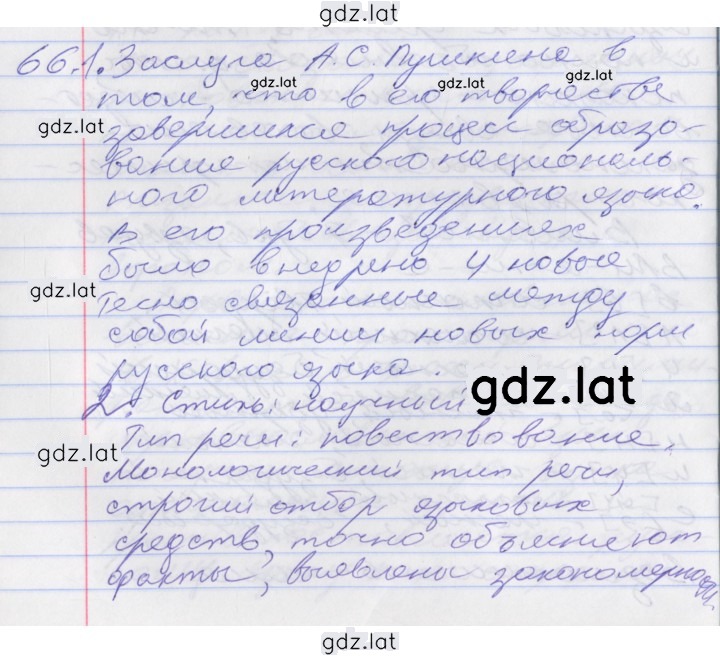 gdz.lat
66.1. Заслуга А.С. Пушкина в
gdz.lat gdz.lat gdz.lat
том, что в его творчестве
gdz.lat
завершился процесс образо-
вание русского националь-
ного литературного языка.
В его произведениях
было внедрено 4 новые
gdz.lat
тесно связанные между
собой линии новых норм
русского языка.
gdz.lat
2. Стиль: научный
Тип речи: повествование.
gdz.lat
Монологический тип речи,
строгий отбор языковых
средств, точно объясняют
факты, выявлены закономерности.
gdz.lat